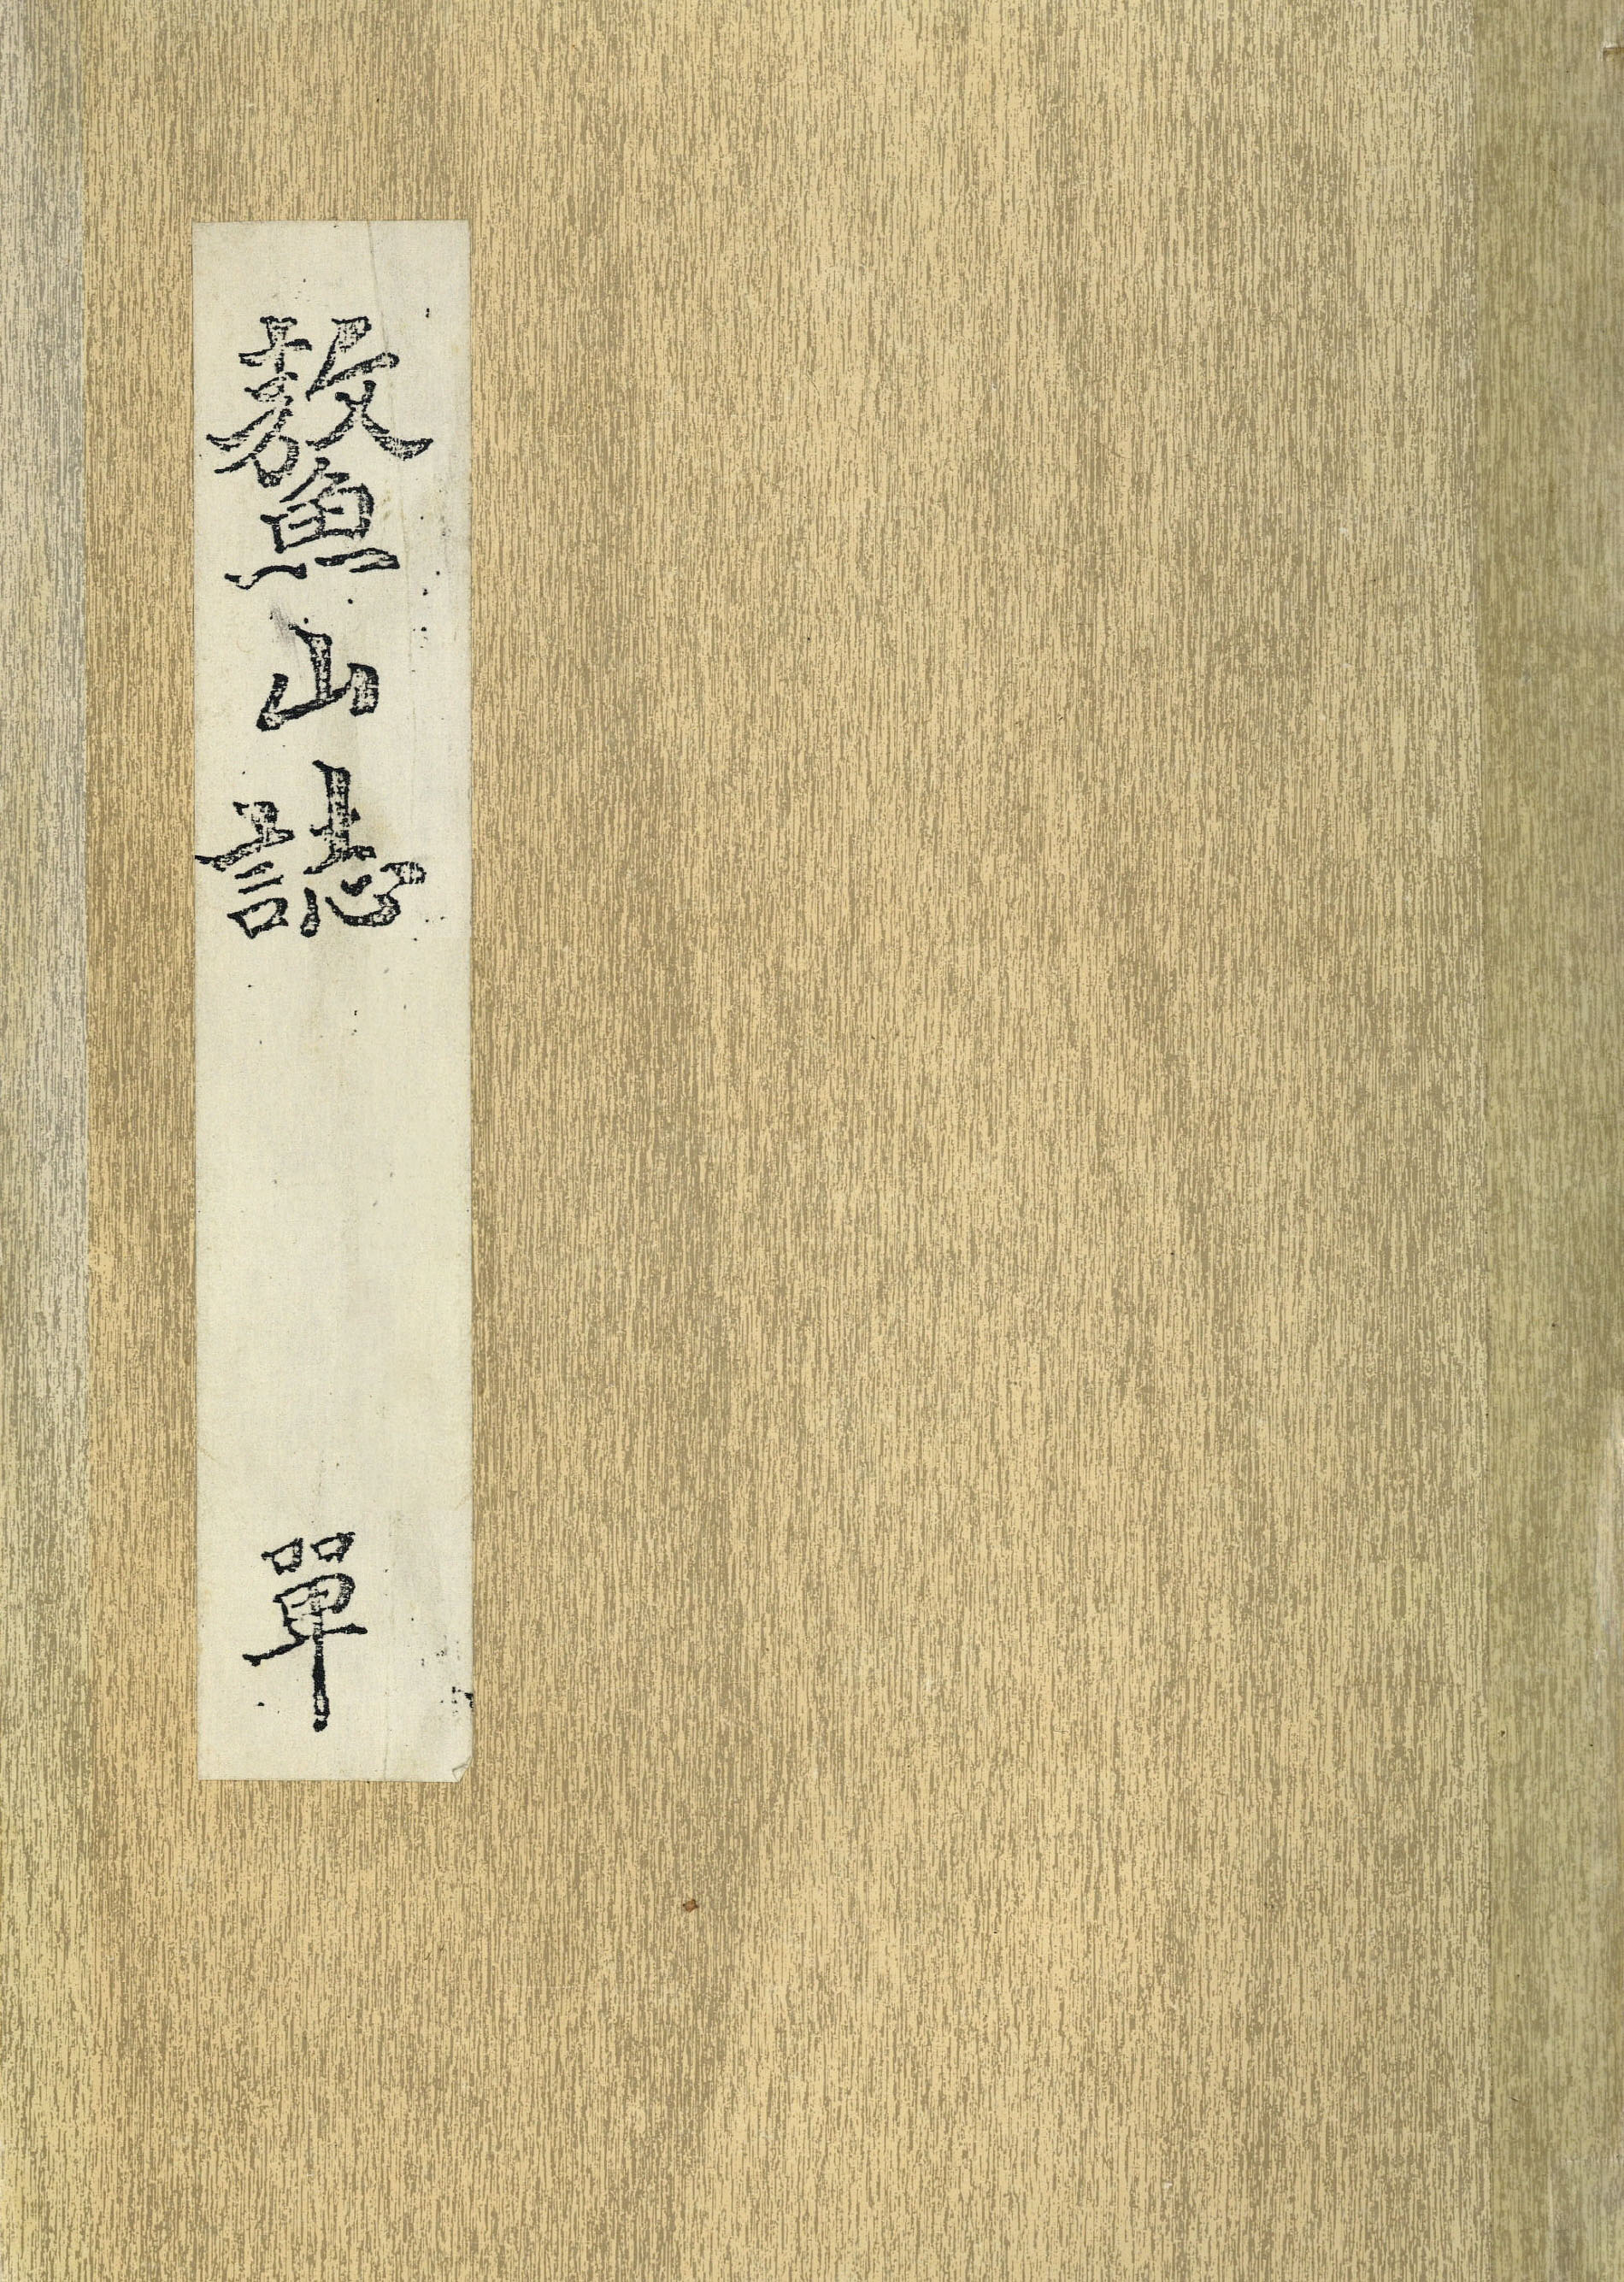 鰲山誌
單